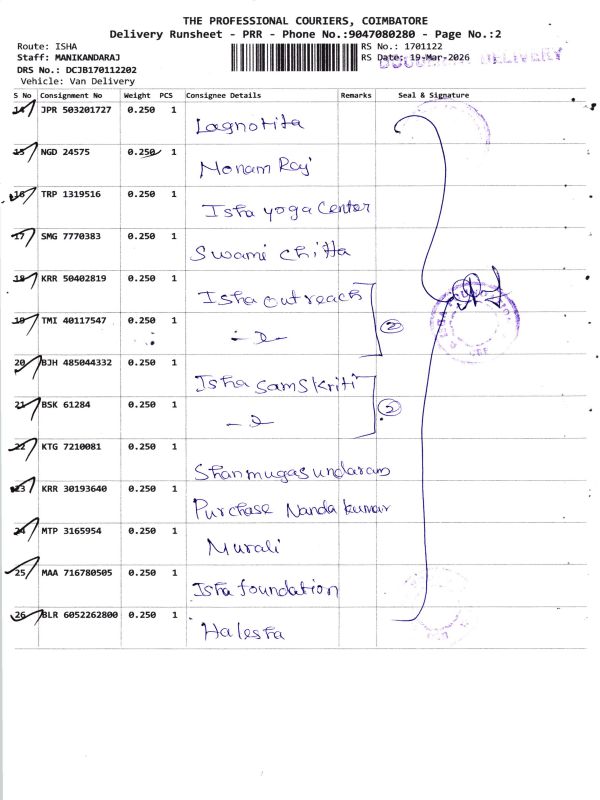 THE PROFESSIONAL COURIERS, COIMBATORE
Delivery Runsheet - PRR - Phone No.:9047080280 - Page No.:2
Route: ISHA
RS No.: 1701122
Staff: MANIKANDARAJ
RS Date: 19-Mar-2026
DELIVERY
DRS No.: DCJB170112202
Vehicle: Van Delivery
S No Consignment No Weight PCS Consignee Details Remarks Seal & Signature
14 JPR 503201727 0.250 1 Lagnotita
15 NGD 24575 0.250 1 Monam Raj
16 TRP 1319516 0.250 1 Isha yoga Center
17 SMG 7770383 0.250 1 Swami Chitta
18 KRR 50402819 0.250 1 Isha outreach
19 TMI 40117547 0.250 1 ②
20 BJH 485044332 0.250 1 Isha Samskriti
21 BSK 61284 0.250 1 ②
22 KTG 7210081 0.250 1 Shanmugasundaram
23 KRR 30193640 0.250 1 Purchase Nanda kumar
24 MTP 3165954 0.250 1 Murali
25 MAA 716780505 0.250 1 Isha foundation
26 BLR 6052262800 0.250 1 Halesha